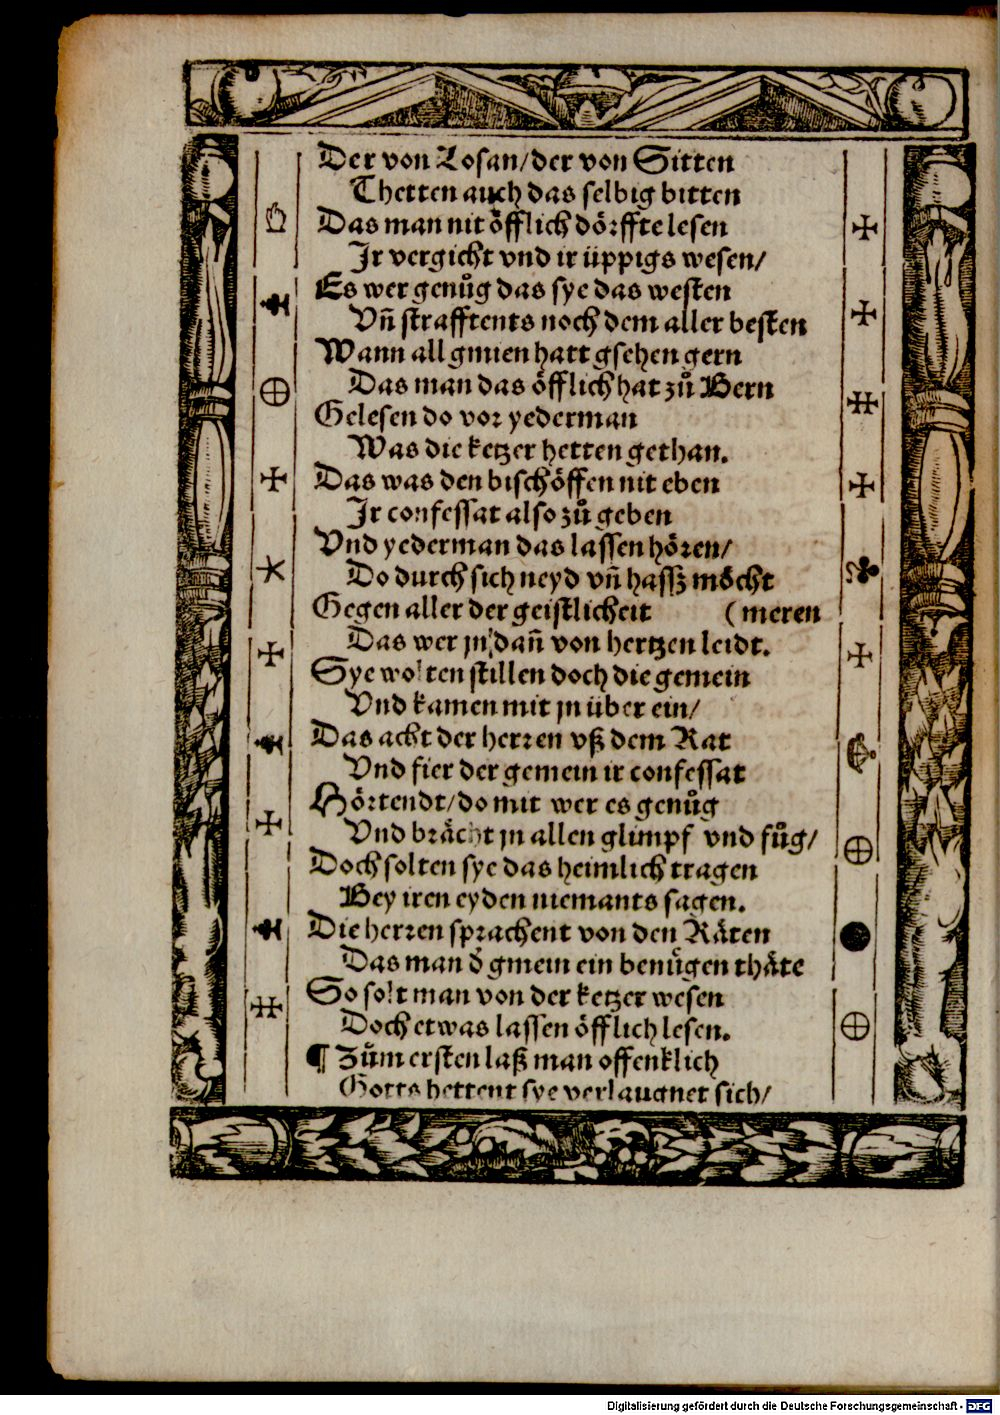 Der von Losan/der von Sitten
Thetten auch das selbig bitten
Das man nit öfflich dörffte lesen
Ir vergicht vnd ir üppigs wesen/
Es wer genůg das sye das westen
Vñ strafftents noch dem aller besten
Wann all gmien hatt gsehen gern
Das man das öfflich hat zů Bern
Gelesen do vor yederman
Was die ketzer hetten gethan.
Das was den bischöffen nit eben
Ir confessat also zů geben
Vnd yederman das lassen hören/
Do durch sich neyd vñ hassz möcht
Gegen aller der geistlicheit (meren
Das wer jn dañ von hertzen leidt.
Sye wolten stillen doch die gemein
Vnd kamen mit jn über ein/
Das acht der herren vß dem Rat
Vnd fier der gemein ir confessat
Hörtendt/do mit wer es genůg
Vnd brächt jn allen glimpf vnd fůg/
Doch solten sye das heimlich tragen
Bey iren eyden niemants sagen.
Die herren sprachent von den Räten
Das man d̕ gmein ein benügen thäte
So solt man von der ketzer wesen
Doch etwas lassen öfflich lesen.
¶ Zům ersten laß man offenklich
Gotts hettent sye verlaugnet sich/
Digitalisierung gefördert durch die Deutsche Forschungsgemeinschaft - DFG